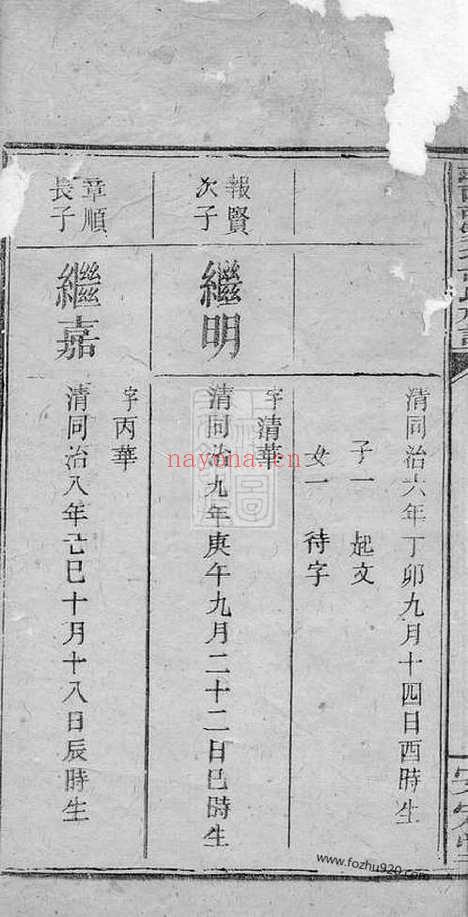 清同治六年丁卯九月十四日酉時生
子一 起文
女一 待字
報賢
次子
繼明
字清華
清同治九年庚午九月二十二日巳時生
章順
長子
繼嘉
字丙華
清同治八年己巳十月十八日辰時生
nayona.cn
www.fozhu920.com